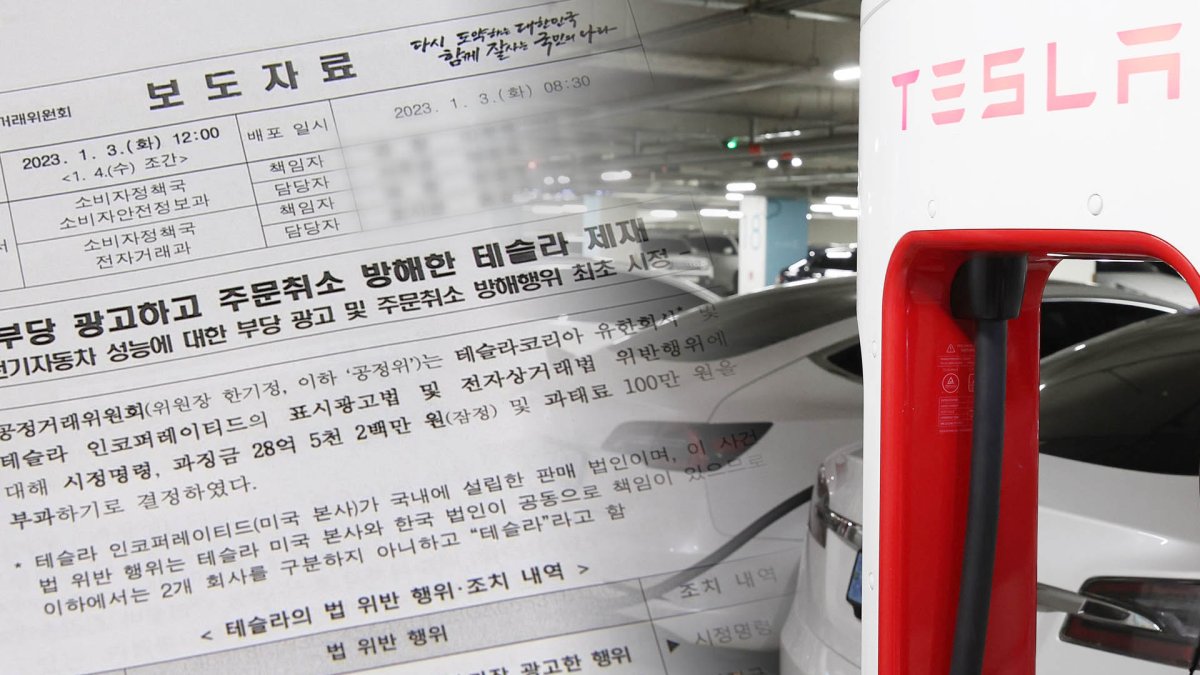 다시 도약하는 대한민국
함께 잘사는 국민의 나라
보도자료
거래위원회
2023. 1. 3.(화) 12:00
<1. 4.(수) 조간>
배포 일시
2023. 1. 3.(화) 08:30
소비자정책국
소비자안전정보과
책임자
담당자
소비자정책국
전자거래과
책임자
담당자
부당 광고하고 주문취소 방해한 테슬라 제재
전기자동차 성능에 대한 부당 광고 및 주문취소 방해행위 최초 시정 -
공정거래위원회(위원장 한기정, 이하 ‘공정위’)는 테슬라코리아 유한회사* 및
테슬라 인코퍼레이티드의 표시광고법 및 전자상거래법 위반행위에
대해 시정명령, 과징금 28억 5천 2백만 원(잠정) 및 과태료 100만 원을
부과하기로 결정하였다.
* 테슬라 인코퍼레이티드(미국 본사)가 국내에 설립한 판매 법인이며, 이 사건
법 위반 행위는 테슬라 미국 본사와 한국 법인이 공동으로 책임이 있으므로
이하에서는 2개 회사를 구분하지 아니하고 “테슬라”라고 함
< 테슬라의 법 위반 행위·조치 내역 >
법 위반 행위
조치 내역
광고한 행위
▶ 시정명령
TESLA